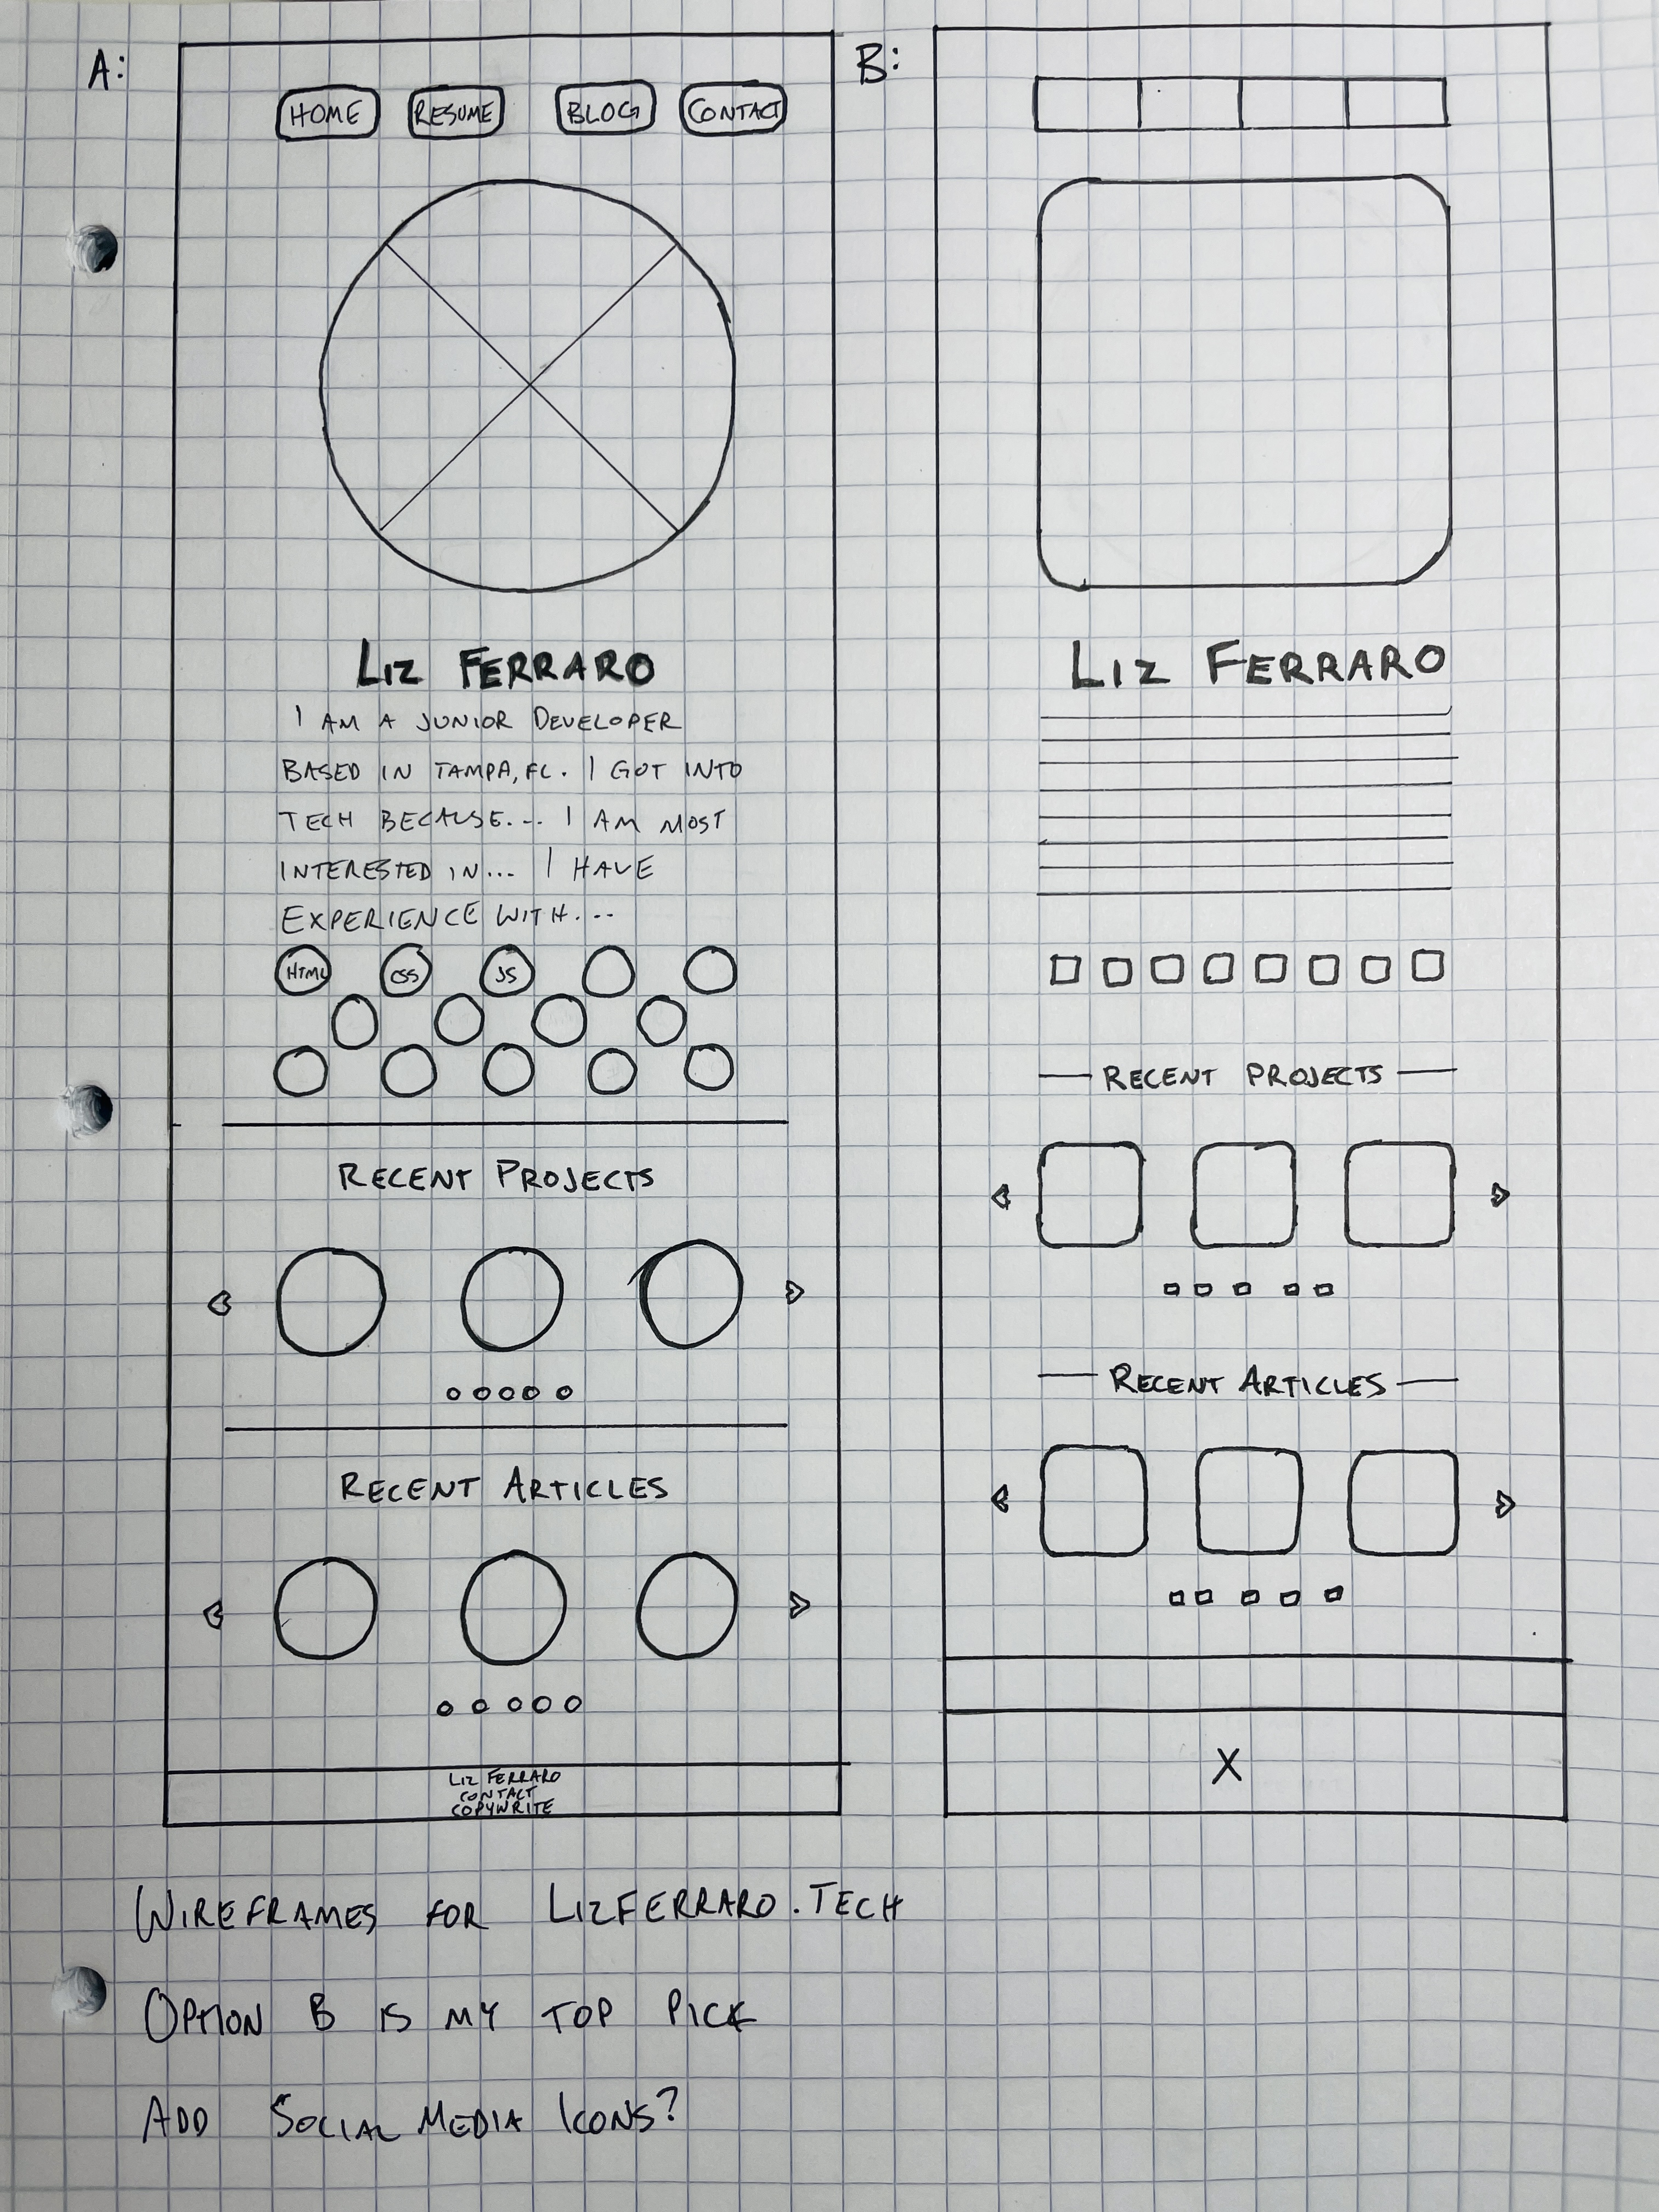 A:
HOME RESUME BLOG CONTACT
LIZ FERRARO
I AM A JUNIOR DEVELOPER
BASED IN TAMPA, FL. I GOT INTO
TECH BECAUSE... I AM MOST
INTERESTED IN... I HAVE
EXPERIENCE WITH...
HTML CSS JS
RECENT PROJECTS
RECENT ARTICLES
LIZ FERRARO
CONTACT
COPYWRITE
B:
LIZ FERRARO
RECENT PROJECTS
RECENT ARTICLES
X
WIREFRAMES FOR LIZFERRARO.TECH
OPTION B IS MY TOP PICK
ADD SOCIAL MEDIA ICONS?